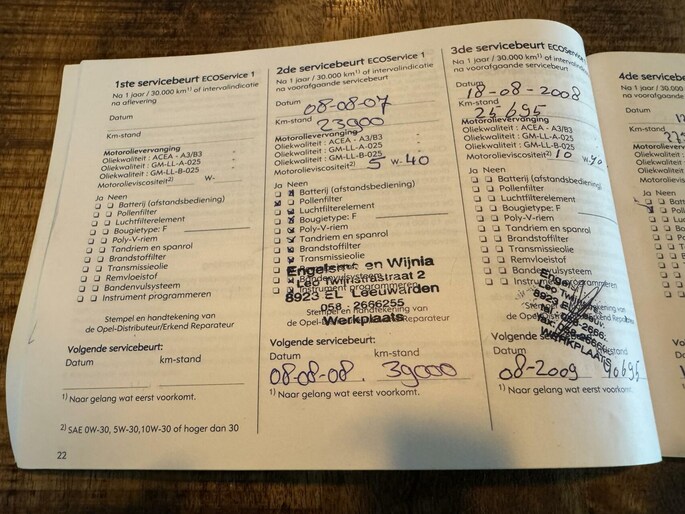 1ste servicebeurt ECOService 1
Na 1 jaar / 30.000 km1) of intervalindicatie
na aflevering
Datum
Km-stand
Motorolievervanging
Oliekwaliteit : ACEA - A3/B3
Oliekwaliteit : GM-LL-A-025
Oliekwaliteit : GM-LL-B-025
Motorolieviscositeit2) W-
Ja Neen
Batterij (afstandsbediening)
Pollenfilter
Luchtfilterelement
Bougietype: F
Poly-V-riem
Tandriem en spanrol
Brandstoffilter
Transmissieolie
Remvloeistof
Bandenvulsysteem
Instrument programmeren
Stempel en handtekening van
de Opel-Distributeur/Erkend Reparateur
Volgende servicebeurt:
Datum km-stand
1) Naar gelang wat eerst voorkomt.
2) SAE 0W-30, 5W-30,10W-30 of hoger dan 30
22
2de servicebeurt ECOService 1
Na 1 jaar / 30.000 km1) of intervalindicatie
na voorafgaande servicebeurt
Datum 08-08-07
Km-stand 23900
Motorolievervanging
Oliekwaliteit : ACEA - A3/B3
Oliekwaliteit : GM-LL-A-025
Oliekwaliteit : GM-LL-B-025
Motorolieviscositeit2) 5 W- 40
Ja Neen
Batterij (afstandsbediening)
Pollenfilter
Luchtfilterelement
Bougietype: F
Poly-V-riem
Tandriem en spanrol
Brandstoffilter
Transmissieolie
Bandenvulsysteem
Instrument programmeren
Engelsma en Wijnia
Leo Twijnstrastraat 2
8923 EL Leeuwarden
058 - 2666255
Werkplaats
Stempel en handtekening van
de Opel- Reparateur
Volgende servicebeurt:
Datum km-stand
08-08-08. 39000
1) Naar gelang wat eerst voorkomt.
3de servicebeurt ECOService
Na 1 jaar / 30.000 km1) of intervalindicatie
na voorafgaande servicebeurt
Datum 18-08-2008
Km-stand 25695
Motorolievervanging
Oliekwaliteit : ACEA - A3/B3
Oliekwaliteit : GM-LL-A-025
Oliekwaliteit : GM-LL-B-025
Motorolieviscositeit2) 10 W- 40
Ja Neen
Batterij (afstandsbediening)
Pollenfilter
Luchtfilterelement
Bougietype: F
Poly-V-riem
Tandriem en spanrol
Brandstoffilter
Transmissieolie
Remvloeistof
Bandenvulsysteem
8923 EL
WERKPLAATS
Volgende
Datum
08-2009 40695
1) Naar gelang wat eerst voorkomt.
4de
Na 1 jaar
na voor
Datum
Km-stand
Ja Neen